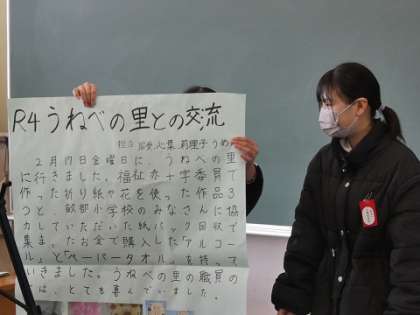 R4 うねべの里との交流
担当 莉理子 うめ
2月17日金曜日に、うねべの里
に行きました。福祉赤十字委員で
作った折り紙や花を使った作品3
つと、畝部小学校のみなさんに協
力していただいた紙パック回収で
集まったお金で購入した「アルコー
ル」と「ペーパータオル」を持って
いきました。うねべの里の職員の
は、とても喜んでいました。